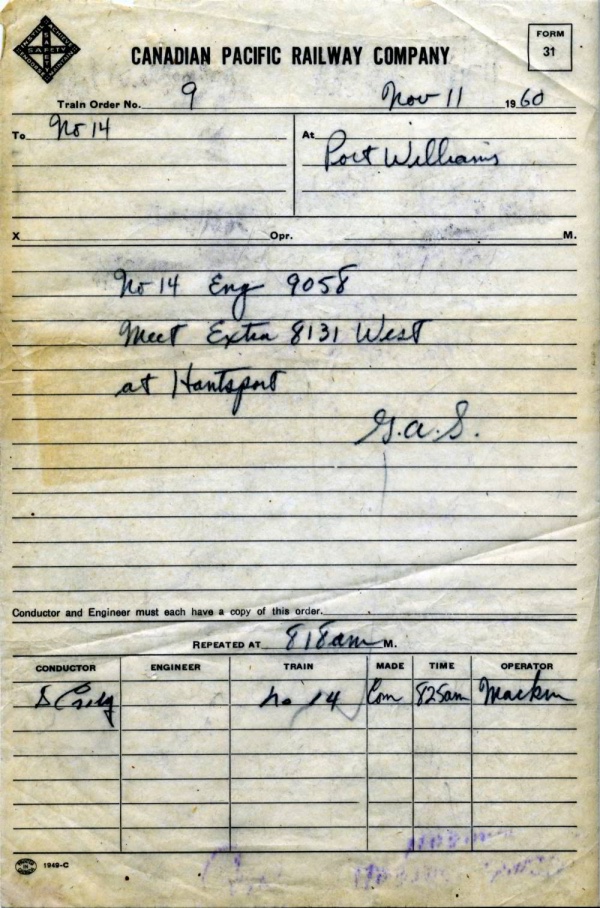 SAFETY
FORM
31
CANADIAN PACIFIC RAILWAY COMPANY
Train Order No. 9 Nov 11 1960
To No 14 At
Port Williams
X Opr. M.
No 14 Eng 9058
Meet Extra 8131 West
at Hantsport
G.A.S.
Conductor and Engineer must each have a copy of this order.
REPEATED AT 818am M.
CONDUCTOR ENGINEER TRAIN MADE TIME OPERATOR
No 14 Com 825am
1949-C